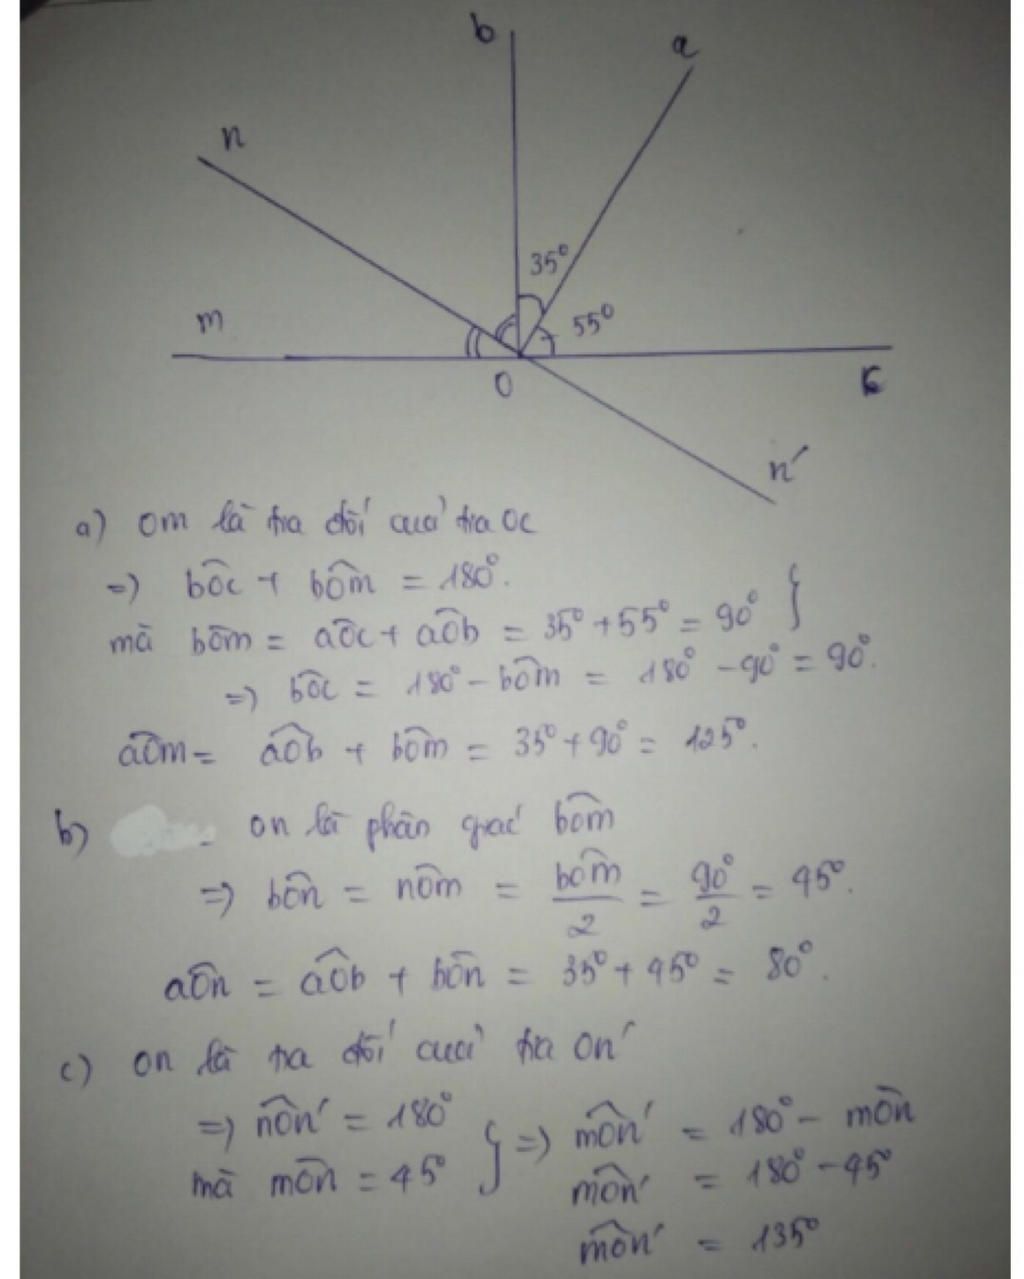 b
a
n
35°
m
55°
O
c
n'
a) Om là tia đối của tia Oc
=) bÔc + bÔm = 180°.
mà bÔm = aÔc + aÔb = 35° + 55° = 90° }
=) bÔc = 180° - bÔm = 180° - 90° = 90°.
aÔm = aÔb + bÔm = 35° + 90° = 125°.
b) on là phân giác bÔm
=) bÔn = nÔm = bÔm/2 = 90°/2 = 45°.
aÔn = aÔb + bÔn = 35° + 45° = 80°.
c) on là tia đối của tia On'
=) nÔn' = 180° } =) mÔn' = 180° - mÔn
mà mÔn = 45° mÔn' = 180° - 45°
mÔn' = 135°